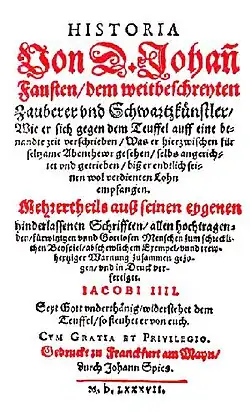 HISTORIA
Von D. Johañ
Fausten / dem weitbeschreyten
Zauberer vnd Schwartzkünstler /
Wie er sich gegen dem Teuffel auff eine be-
nandte zeit verschrieben / Was er hierzwischen für
seltzame Abenthewr gesehen / selbs angerich-
tet vnd getrieben / biß er endtlich sei-
nen wol verdienten Lohn
empfangen.
Mehrertheils auß seinen eygenen
hinderlassenen Schrifften / allen hochtragen-
den / fürwitzigen vnnd Gottlosen Menschen zum schreckli-
chen Beyspiel / abschewlichem Exempel / vnnd trew-
hertziger Warnung zusammen gezo-
gen / vnd in Druck ver-
fertiget.
IACOBI IIII.
Seyt Gott vnderthänig / widerstehet dem
Teuffel / so fleuhet er von euch.
CVM GRATIA ET PRIVILEGIO.
Gedruckt zu Franckfurt am Mayn /
durch Johann Spies.
M. D. LXXXVII.